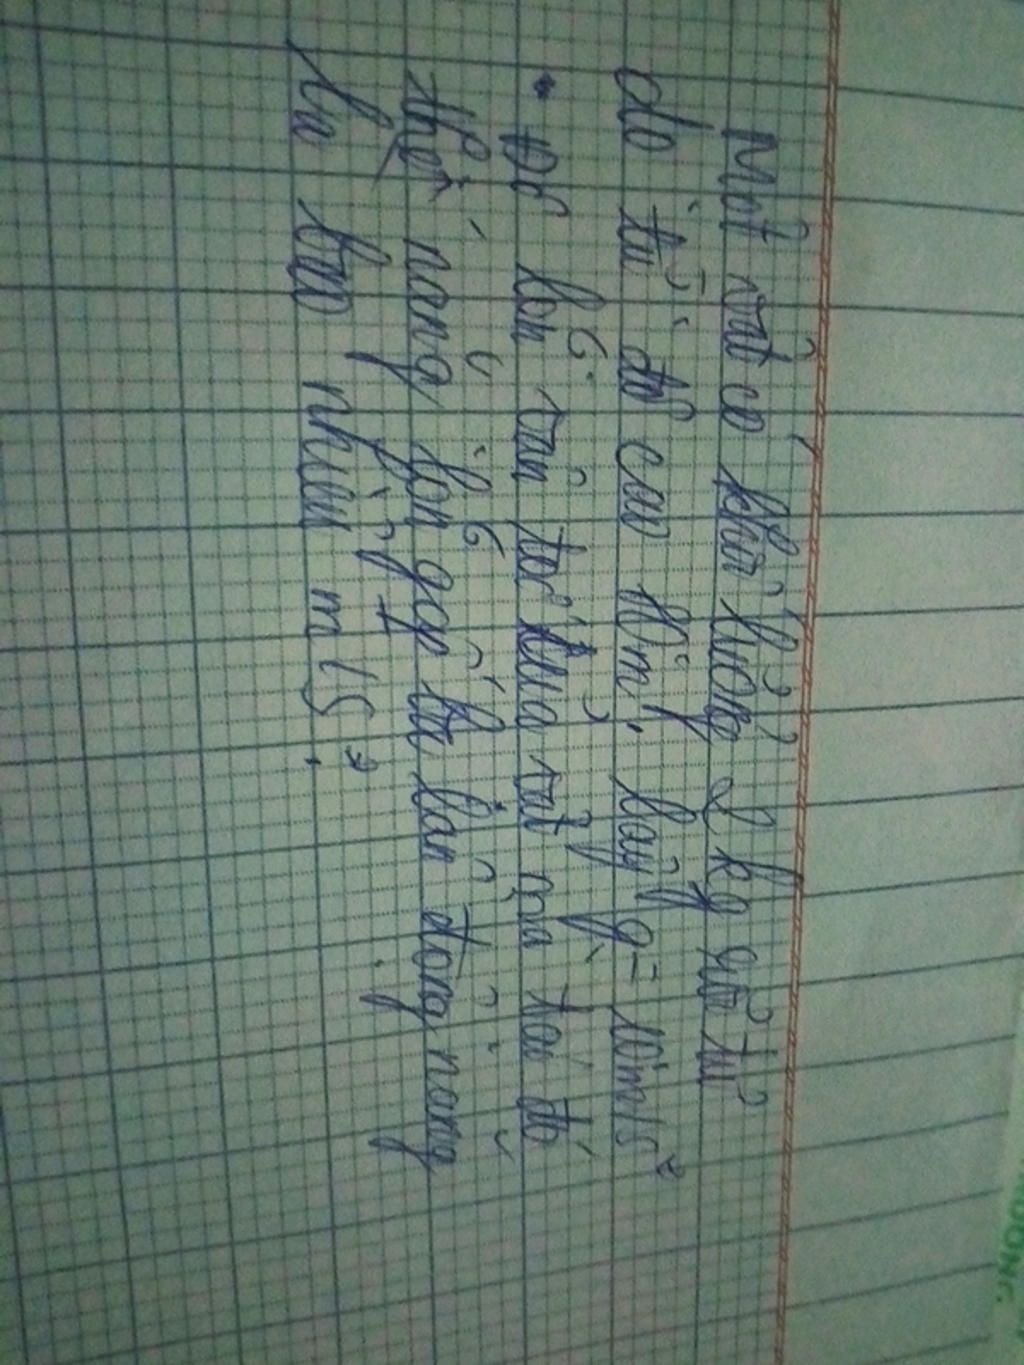 Một vật có khối lượng 2 kg rơi tự
do từ độ cao 10m, lấy g = 10m/s²
• Độ lớn vận tốc của vật mà tại đó
thế năng lớn gấp ba lần động năng
là bao nhiêu m/s